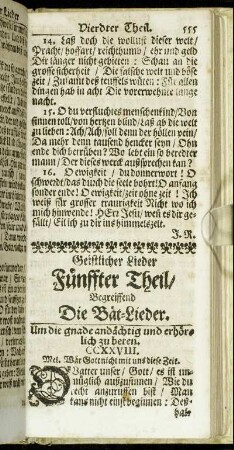 Vierdter Theil. 555
14. Laß doch die wollust dieser welt /
Pracht / hoffart / reichthumb / ehr und geld
Dir länger nicht gebieten : Schau an die
grosse sicherheit / Die falsche welt und böse
zeit / Zusamt des teuffels wüten : Für allen
dingen hab in acht Die vorerwehnte lange
nacht.
15. O du verfluchtes menschenkind / Von
sinnen toll / von hertzen blind / Laß ab die welt
zu lieben : Ach / Ach / soll denn der höllen pein /
Da mehr denn tausend hencker seyn / Ohn
ende dich betrüben? Wo lebt ein so beredter
mann / Der dieses werck aussprechen kan ?
16. O ewigkeit / du donnerwort! O
schwerdt / das durch die seele bohrt! O anfang
sonder ende! O ewigkeit / zeit ohne zeit ! Ich
weiß für grosser traurigkeit Nicht wo ich
mich hinwende : HErr Jesu / weñ es dir ge-
fällt / Eil ich zu dir ins himmelszelt.
J. R.
Geistlicher Lieder
Fünffter Theil /
Begreiffend
Die Bät-Lieder.
Um die gnade andächtig und erhör-
lich zu beten.
CCXXVIII.
Mel. Wär Gott nicht mit uns diese Zeit.
O Vatter unser / Gott / es ist un-
müglich außzusinnen / Wie du
recht anzuruffen bist / Man
kans nicht einst beginnen : Deß-
halb